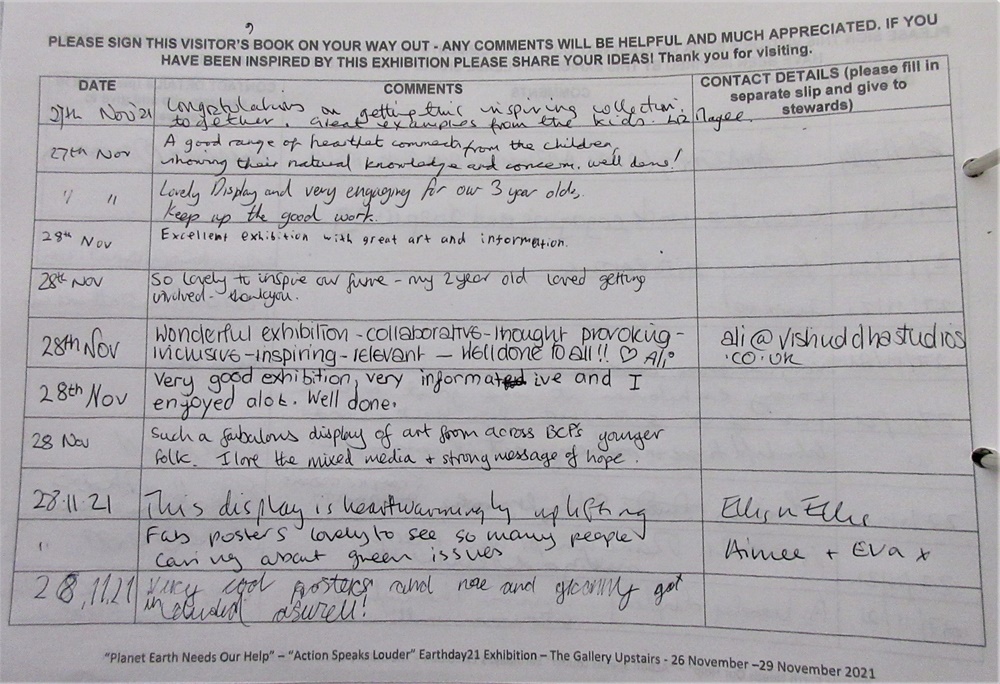 PLEASE SIGN THIS VISITOR'S BOOK ON YOUR WAY OUT - ANY COMMENTS WILL BE HELPFUL AND MUCH APPRECIATED. IF YOU
HAVE BEEN INSPIRED BY THIS EXHIBITION PLEASE SHARE YOUR IDEAS! Thank you for visiting.
DATE COMMENTS CONTACT DETAILS (please fill in
separate slip and give to
stewards)
27th Nov'21 Congratulations on getting this inspiring collection
together. Great examples from the kids. Liz
27th Nov A good range of heartfelt comments from the children,
showing their natural knowledge and concern. well done!
" " Lovely Display and very engaging for our 3 year olds.
Keep up the good work.
28th Nov Excellent exhibition with great art and information.
28th Nov So lovely to inspire our - my 2 year old loved getting
involved - thankyou.
28th Nov Wonderful exhibition - collaborative - thought provoking -
inclusive - inspiring - relevant — Well done to all!! ♡ Ali
ali@vishuddhastudios
.co.uk
28th Nov Very good exhibition, very informative and I
enjoyed alot. Well done.
28 Nov Such a fabulous display of art from across BCP's younger
folk. I love the mixed media + strong message of hope.
28.11.21 This display is heartwarmingly uplifting Ellis
" Fab posters lovely to see so many people
caring about green issues Aimee + Eva x
28.11.21 Very cool posters and me and granny got
included aswell!
"Planet Earth Needs Our Help" – "Action Speaks Louder" Earthday21 Exhibition – The Gallery Upstairs - 26 November –29 November 2021